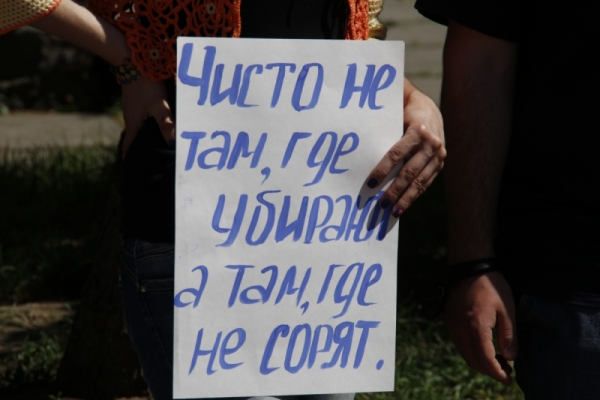 Чисто не
там, где
убирают
а там, где
не сорят.